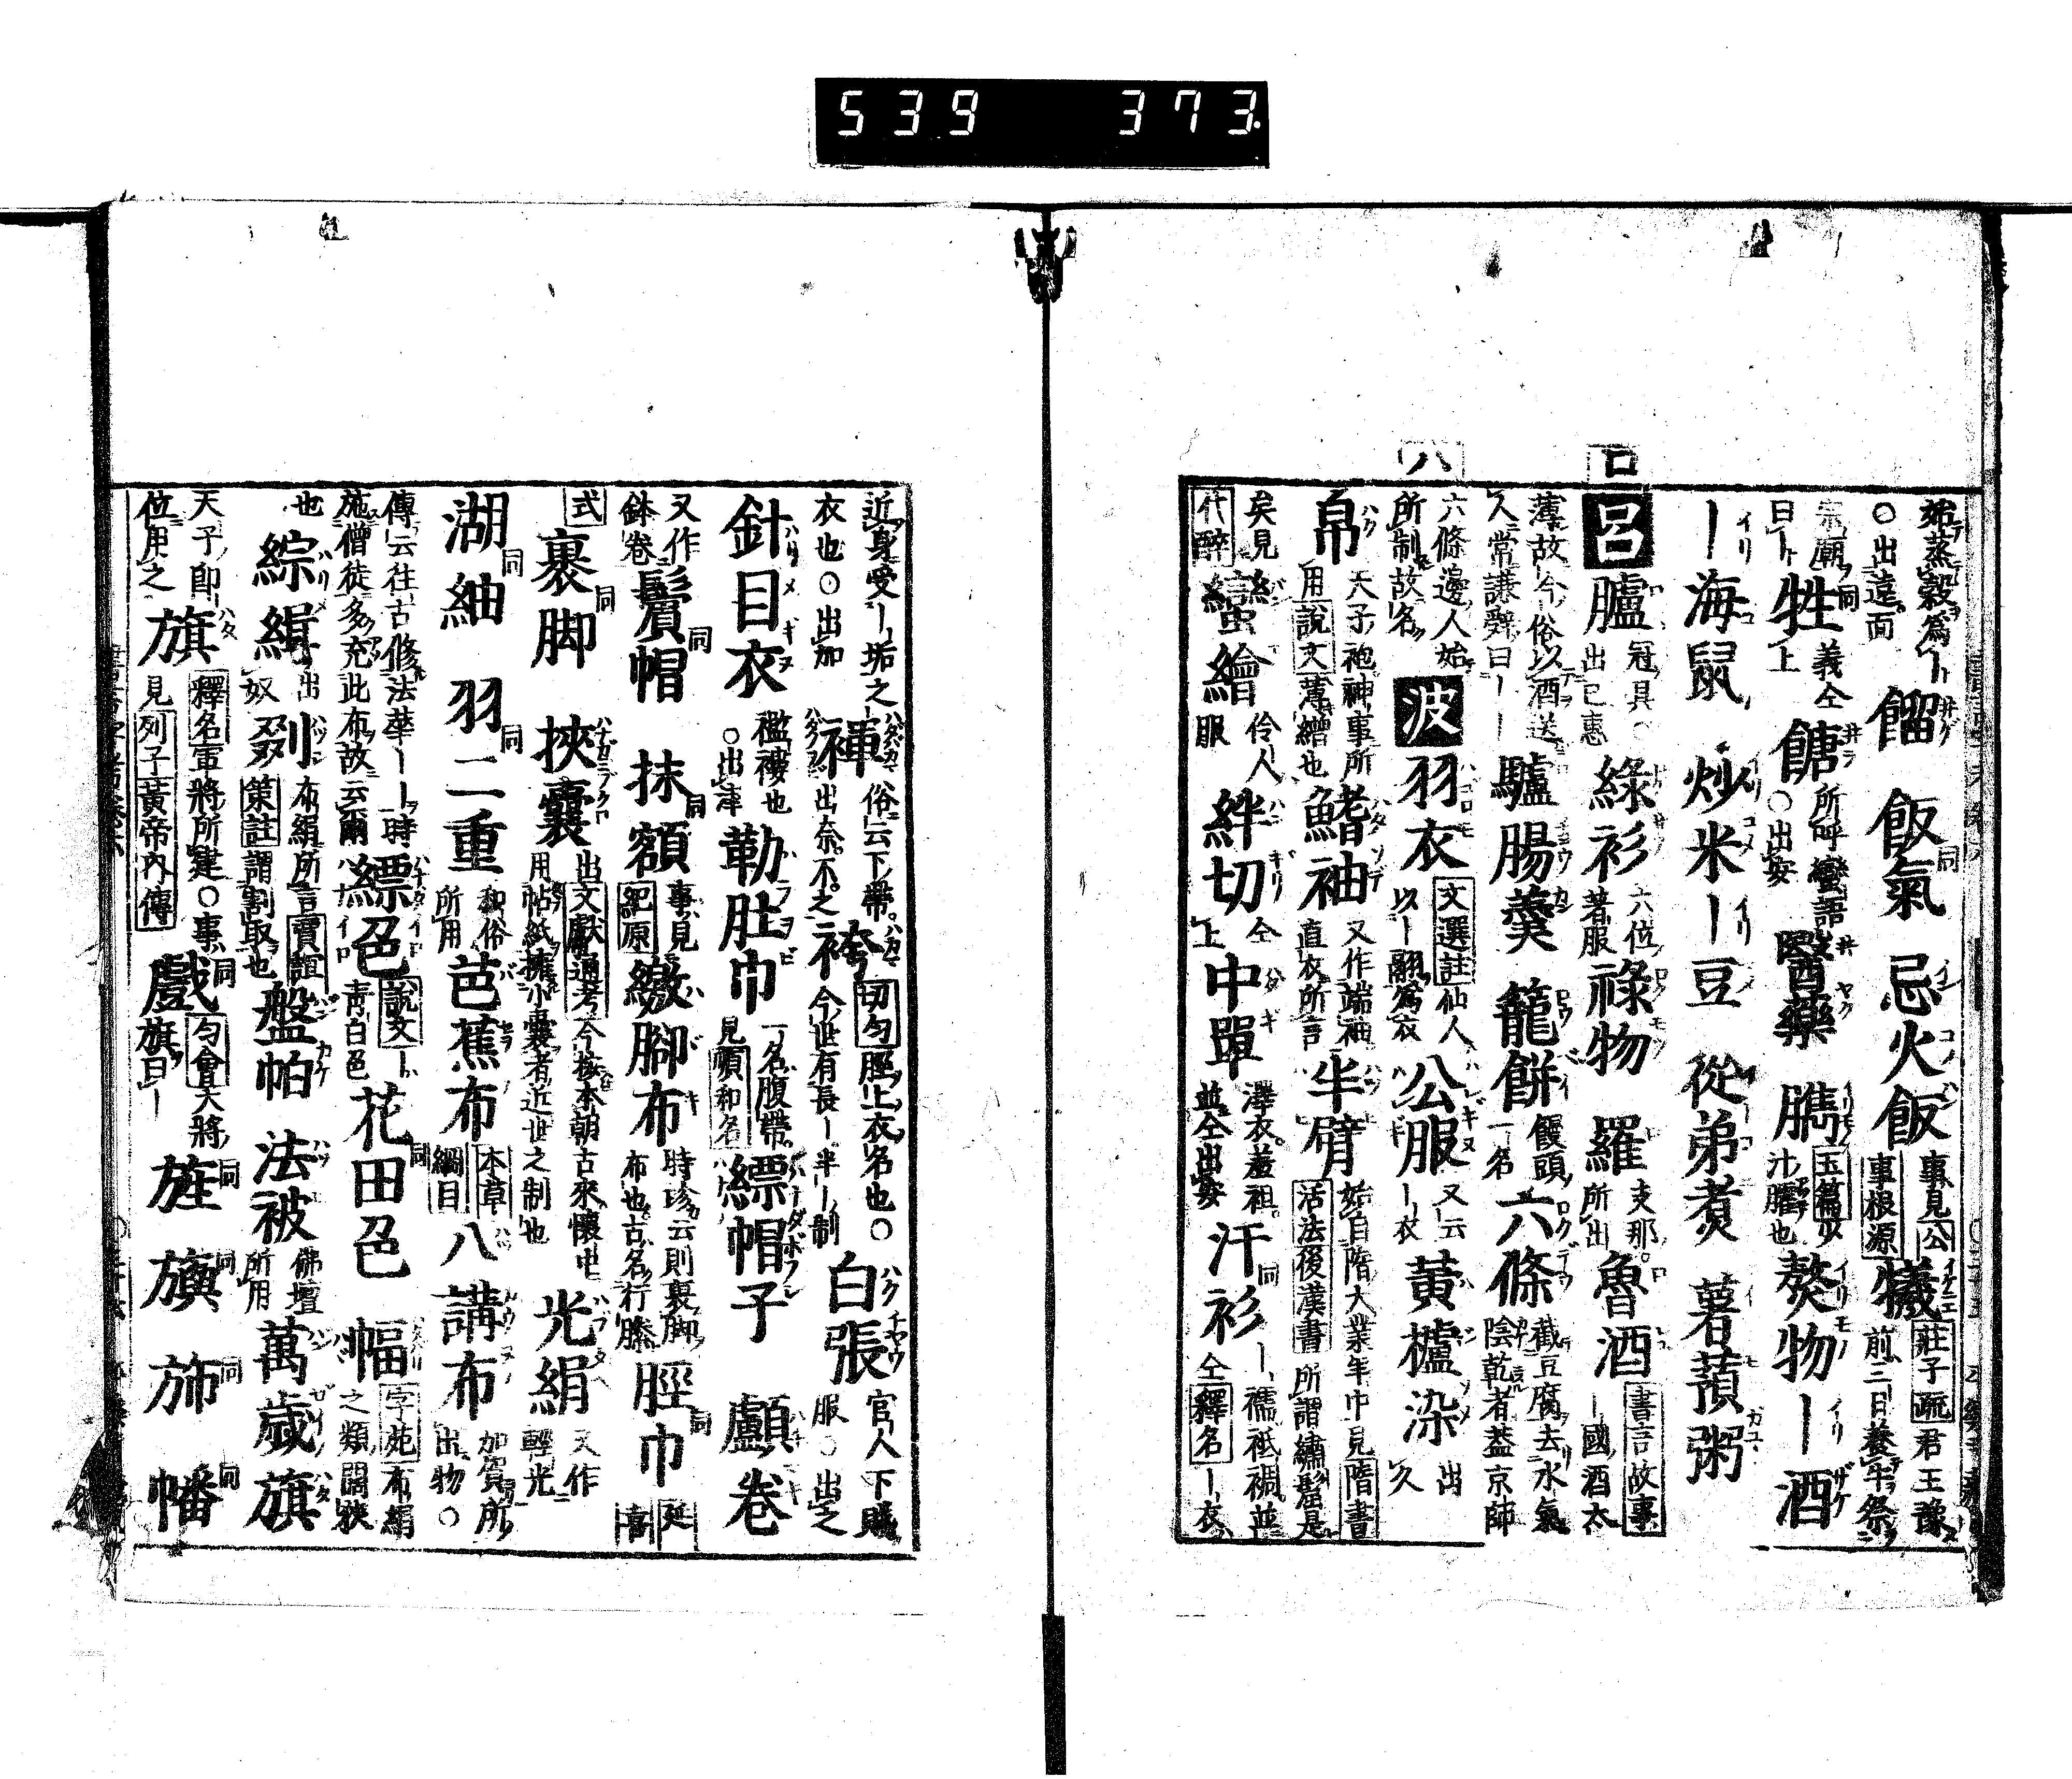 539 373
始蒸穀爲ー 餾 飯氣同 忌火飯 事見公ー
○出遠面 事根源 犠 莊子疏君王豫
前三日養牛祭
宗廟 牲同 義仝 餹 所呼蠻語 醫藥 臇 玉篇少 熬物 ー酒
曰ー 上 ○出安 汁臛也
ー海鼠 炒米 ー豆 從弟煮 薯蕷粥
呂 臚 冠具 緑衫 六位 祿物 羅 支那 魯酒 書言故事
出已惠 著服 所出 ー國酒太
薄故今俗以酒送 驢腸羹 籠餅 饅頭 六條 截豆腐去水氣
人常謙辭曰ーー 一名 陰乾者蓋京師
六條邊人始 波 羽衣 文選註仙人 公服 又云 黃櫨染 出
所制故名 以ー翮爲衣 ー衣 久
帛 天子袍神事所 鰭袖 又作端袖 半臂 始自隋大業年中見隋書
用說文薄繒也 直衣所言 活法後漢書所謂繡䘿是
矣見 絲 繪 伶人 絆切 仝 中單 澤衣羞袒 汗衫同 ー襦祗裯並
代醉 服 上 並仝出安 仝釋名ー衣
近身受ー垢之 褌 俗云下帶 袴 切勻脛上衣名也○ 白張 官人下賤
衣也○出加 出奈不之 今世有長ー半ー制 服○出之
針目衣 襤褸也 勒肚巾 一名腹帶 縹帽子 顱卷
○出津 見順和名
又作 鬢帽同 抹額同 事見 繳腳布 時珍云則裹脚 脛巾同 延
鉢卷 紀原 布也古名行縢 喜
式 裹脚同 挾囊 出文獻通考今按本朝古來懷中 光絹 又作
用帖紙擁小囊者近世之制也 輕光
湖紬同 羽二重同 和俗 芭蕉布 本草 八講布 加賀所
所用 綱目 出物○
傳云往古修法華ーー時 縹色 說文ー 花田色同 幅 字苑布絹
施僧徒多充此布故云爾 靑白色 之類闊狹
也 綜緝 出 剟 布絹所言賣誼 盤帕 法被 佛壇 萬歲旗
奴 策註謂割取也 所用
天子卽ー 旗 釋名軍將所建○事 戲同 勻會大將 旌同 旟同 斾同 幡同
位用之 見列子黃帝內傳 旗曰ー